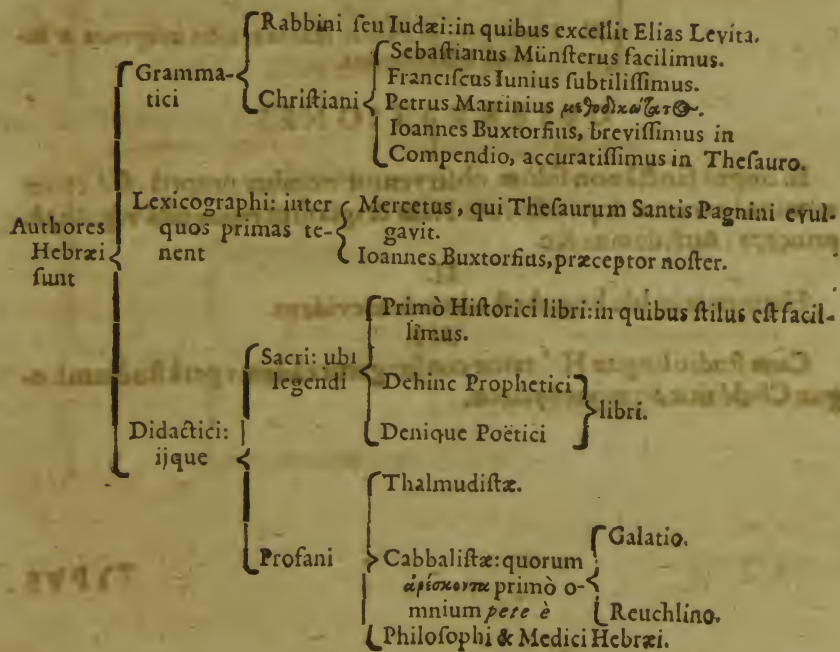 Authores
Hebræi
sunt
Gramma-
tici
Rabbini seu Iudæi: in quibus excellit Elias Levita.
Christiani
Sebastianus Münsterus facilimus.
Franciscus Iunius subtilissimus.
Petrus Martinius
Ioannes Buxtorfius, brevissimus in
Compendio, accuratissimus in Thesauro.
Lexicographi: inter
quos primas te-
nent
Mercetus, qui Thesaurum Santis Pagnini evul-
gavit.
Ioannes Buxtorfius, præceptor noster.
Didactici:
ijque
Sacri: ubi
legendi
Primò Historici libri: in quibus stilus est facil-
limus.
Dehinc Prophetici
Denique Poëtici
libri.
Profani
Thalmudistæ.
Cabbalistæ: quorum
ἀρέσκοντα primò o-
mnium pete è
Galatio.
Reuchlino.
Philosophi & Medici Hebræi.